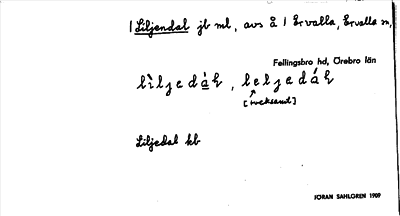 1 Liljendal jb ml, avs å 1 Ervalla, Ervalla sn,
Fellingsbro hd, Örebro län
lìljedáh, leljedáh
[tveksamt]
Liljedal kb
JÖRAN SAHLGREN 1909